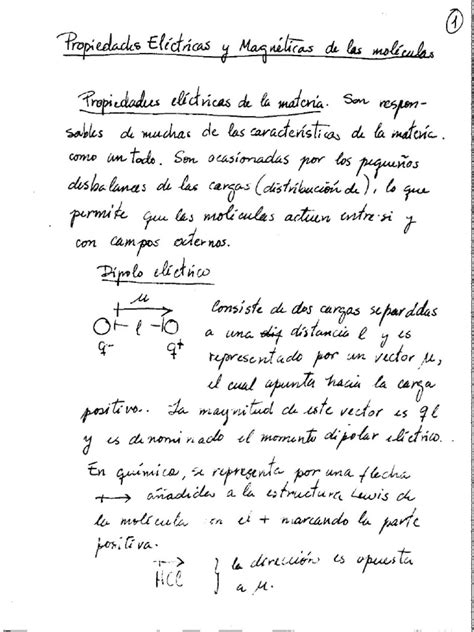 1
Propiedades Eléctricas y Magnéticas de las moléculas
Propiedades eléctricas de la materia. Son respon-
sables de muchas de las características de la materia
como un todo. Son ocasionadas por los pequeños
desbalances de las cargas (distribución de), lo que
permite que las moléculas actuen entre si y
con campos externos.
Dipolo eléctrico
μ
l
q- q+
Consiste de dos cargas separadas
a una distancia l y es
representado por un vector μ,
el cual apunta hacia la carga
positivo.. La magnitud de este vector es ql
y es denominado el momento dipolar eléctrico.
En química, se representa por una flecha
+→ añadida a la estructura Lewis de
la molécula con el + marcando la parte
positiva.
HCl } la dirección es opuesta
a μ.